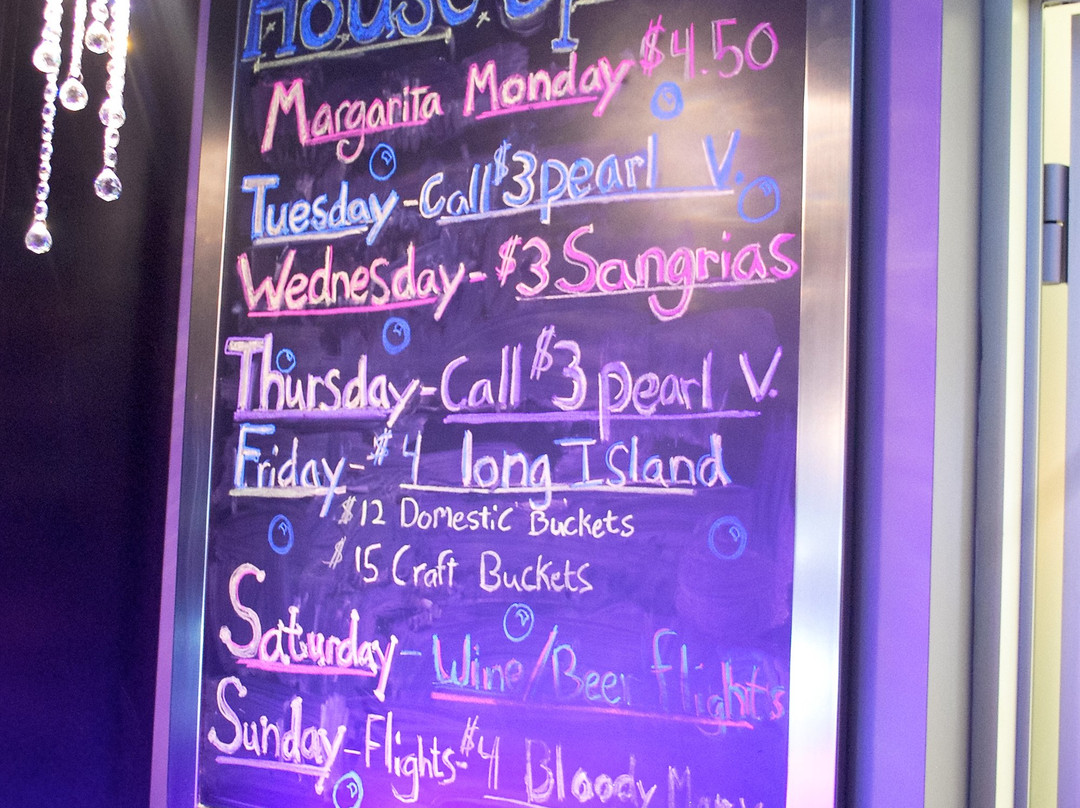 House
Margarita Monday $4.50
Tuesday - Call $3 pearl V.
Wednesday - $3 Sangrias
Thursday - Call $3 pearl V.
Friday - $4 long Island
$12 Domestic Buckets
$15 Craft Buckets
Saturday - Wine/Beer flights
Sunday - Flights - $4 Bloody Mary